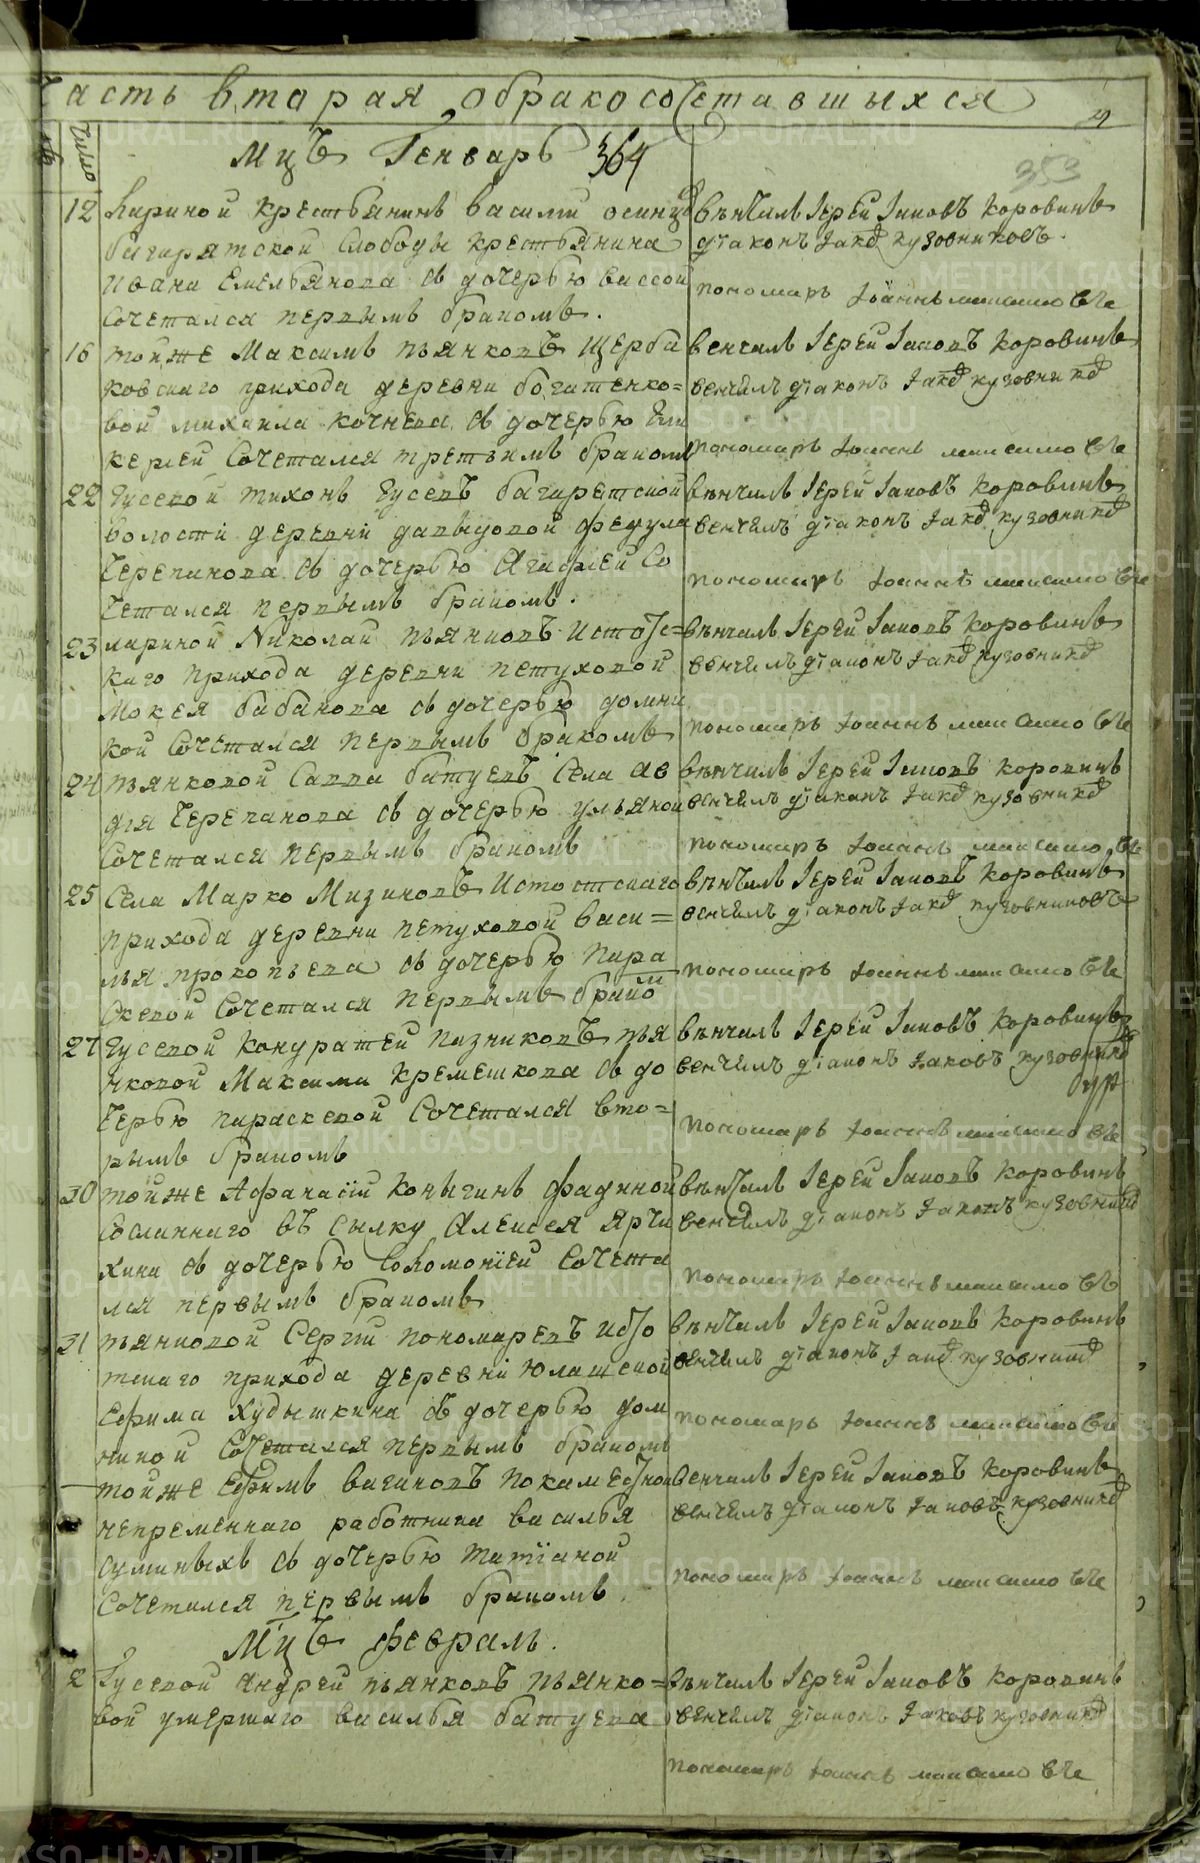 Часть вторая о бракосочетавшихся
4
Число
Мцъ Генварь 364
353
12 Лариной крестьянинъ Василий Осинце
Багарятской слободы крестьянина
Ивана Емельянова съ дочерью Вассой
сочетался первымъ бракомъ.
вѣнчалъ Іерей Іаковъ Коровинъ
діаконъ Іаковъ Кузовниковъ.
пономарь Іоаннъ
16 той же Максимъ Пьянковъ Щерба
ковскаго прихода деревни Богатенко=
вой Михаила Кочнева съ дочерью Гли
керіей сочетался третьимъ бракомъ
венчалъ Іерей Іаковъ Коровинъ
венчалъ діаконъ Іаковъ Кузовников
пономарь Іоаннъ
22 Гусевой Тихонъ Гусевъ Багаретской
волости деревни Давыдовой Федула
Черепанова съ дочерью Агафіей со
четался первымъ бракомъ.
вѣнчалъ Іерей Іаковъ Коровинъ
венчалъ діаконъ Іаков Кузовников
пономарь Іоаннъ
23 Лариной Николай Пьянковъ Исто=
каго прихода деревни Петуховой
Мокея Бабанова съ дочерью Домни
кой сочетался первымъ бракомъ
вѣнчалъ Іерей Іаковъ Коровинъ
венчалъ діаконъ Іаков Кузовников
пономарь Іоаннъ
24 Пьянковой Савва Батуевъ села Ав
дія Черепанова съ дочерью Ульяной
сочетался первымъ бракомъ
вѣнчалъ Іерей Іаковъ Коровинъ
венчалъ діаконъ Іаков Кузовников
пономарь Іоаннъ
25 Села Марко Мизиновъ Истотскаго
прихода деревни Петуховой Васи=
лья Прокопьева съ дочерью Пара
скевой сочетался первымъ браком
вѣнчалъ Іерей Іаковъ Коровинъ
венчалъ діаконъ Іаков Кузовниковъ
пономарь Іоаннъ
27 Гусевой Кондратей Пазниковъ Пья
нковой Максима Кремешкова съ до
черью Параскевой сочетался вто=
рымъ бракомъ
вѣнчалъ Іерей Іаковъ Коровинъ
венчалъ діаконъ Іаковъ Кузовников
пономарь Іоаннъ
30 той же Афанасій Коныгинъ Фадиной
сосланнаго въ сылку Алексея Ярчи
хина съ дочерью Соломоніей сочета
лся первымъ бракомъ
вѣнчалъ Іерей Іаковъ Коровинъ
венчалъ діаконъ Іаковъ Кузовников
пономарь Іоаннъ
31 Пьянковой Сергій Пономаревъ Исто
тскаго прихода деревни Юлашской
Ефима Худышкина съ дочерью Дом
никой сочетался первымъ бракомъ
вѣнчалъ Іерей Іаковъ Коровинъ
венчалъ діаконъ Іаков Кузовников
пономарь Іоаннъ
той же Ефимъ Вагиновъ Покамесной
непременнаго работника Василья
съ дочерью Татіаной
сочетался первымъ бракомъ
венчалъ Іерей Іаковъ Коровинъ
венчалъ діаконъ Іаковъ Кузовников
пономарь Іоаннъ
Мцъ Февраль.
2 Гусевой Андрей Пьянковъ Пьянко=
вой умершаго Василья Батуева
вѣнчалъ Іерей Іаковъ Коровинъ
венчалъ діаконъ Іаковъ Кузовников
пономарь Іоаннъ
METRIKI.GASO-URAL.RU